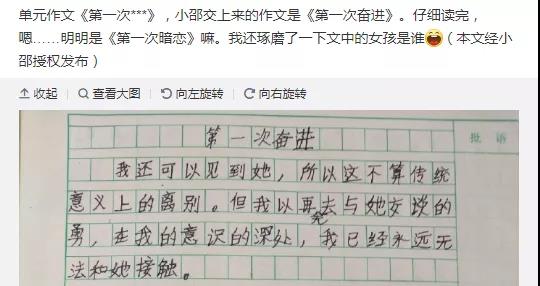 单元作文《第一次***》，小邵交上来的作文是《第一次奋进》。仔细读完，
嗯……明明是《第一次暗恋》嘛。我还琢磨了一下文中的女孩是谁😄（本文经小
邵授权发布）
收起 查看大图 向左旋转 向右旋转
第一次奋进
批语
我还可以见到她，所以这不算传统
意义上的离别。但我以再去与她交谈的
勇，在我的意识的深处，我已经永远无
法和她接触。